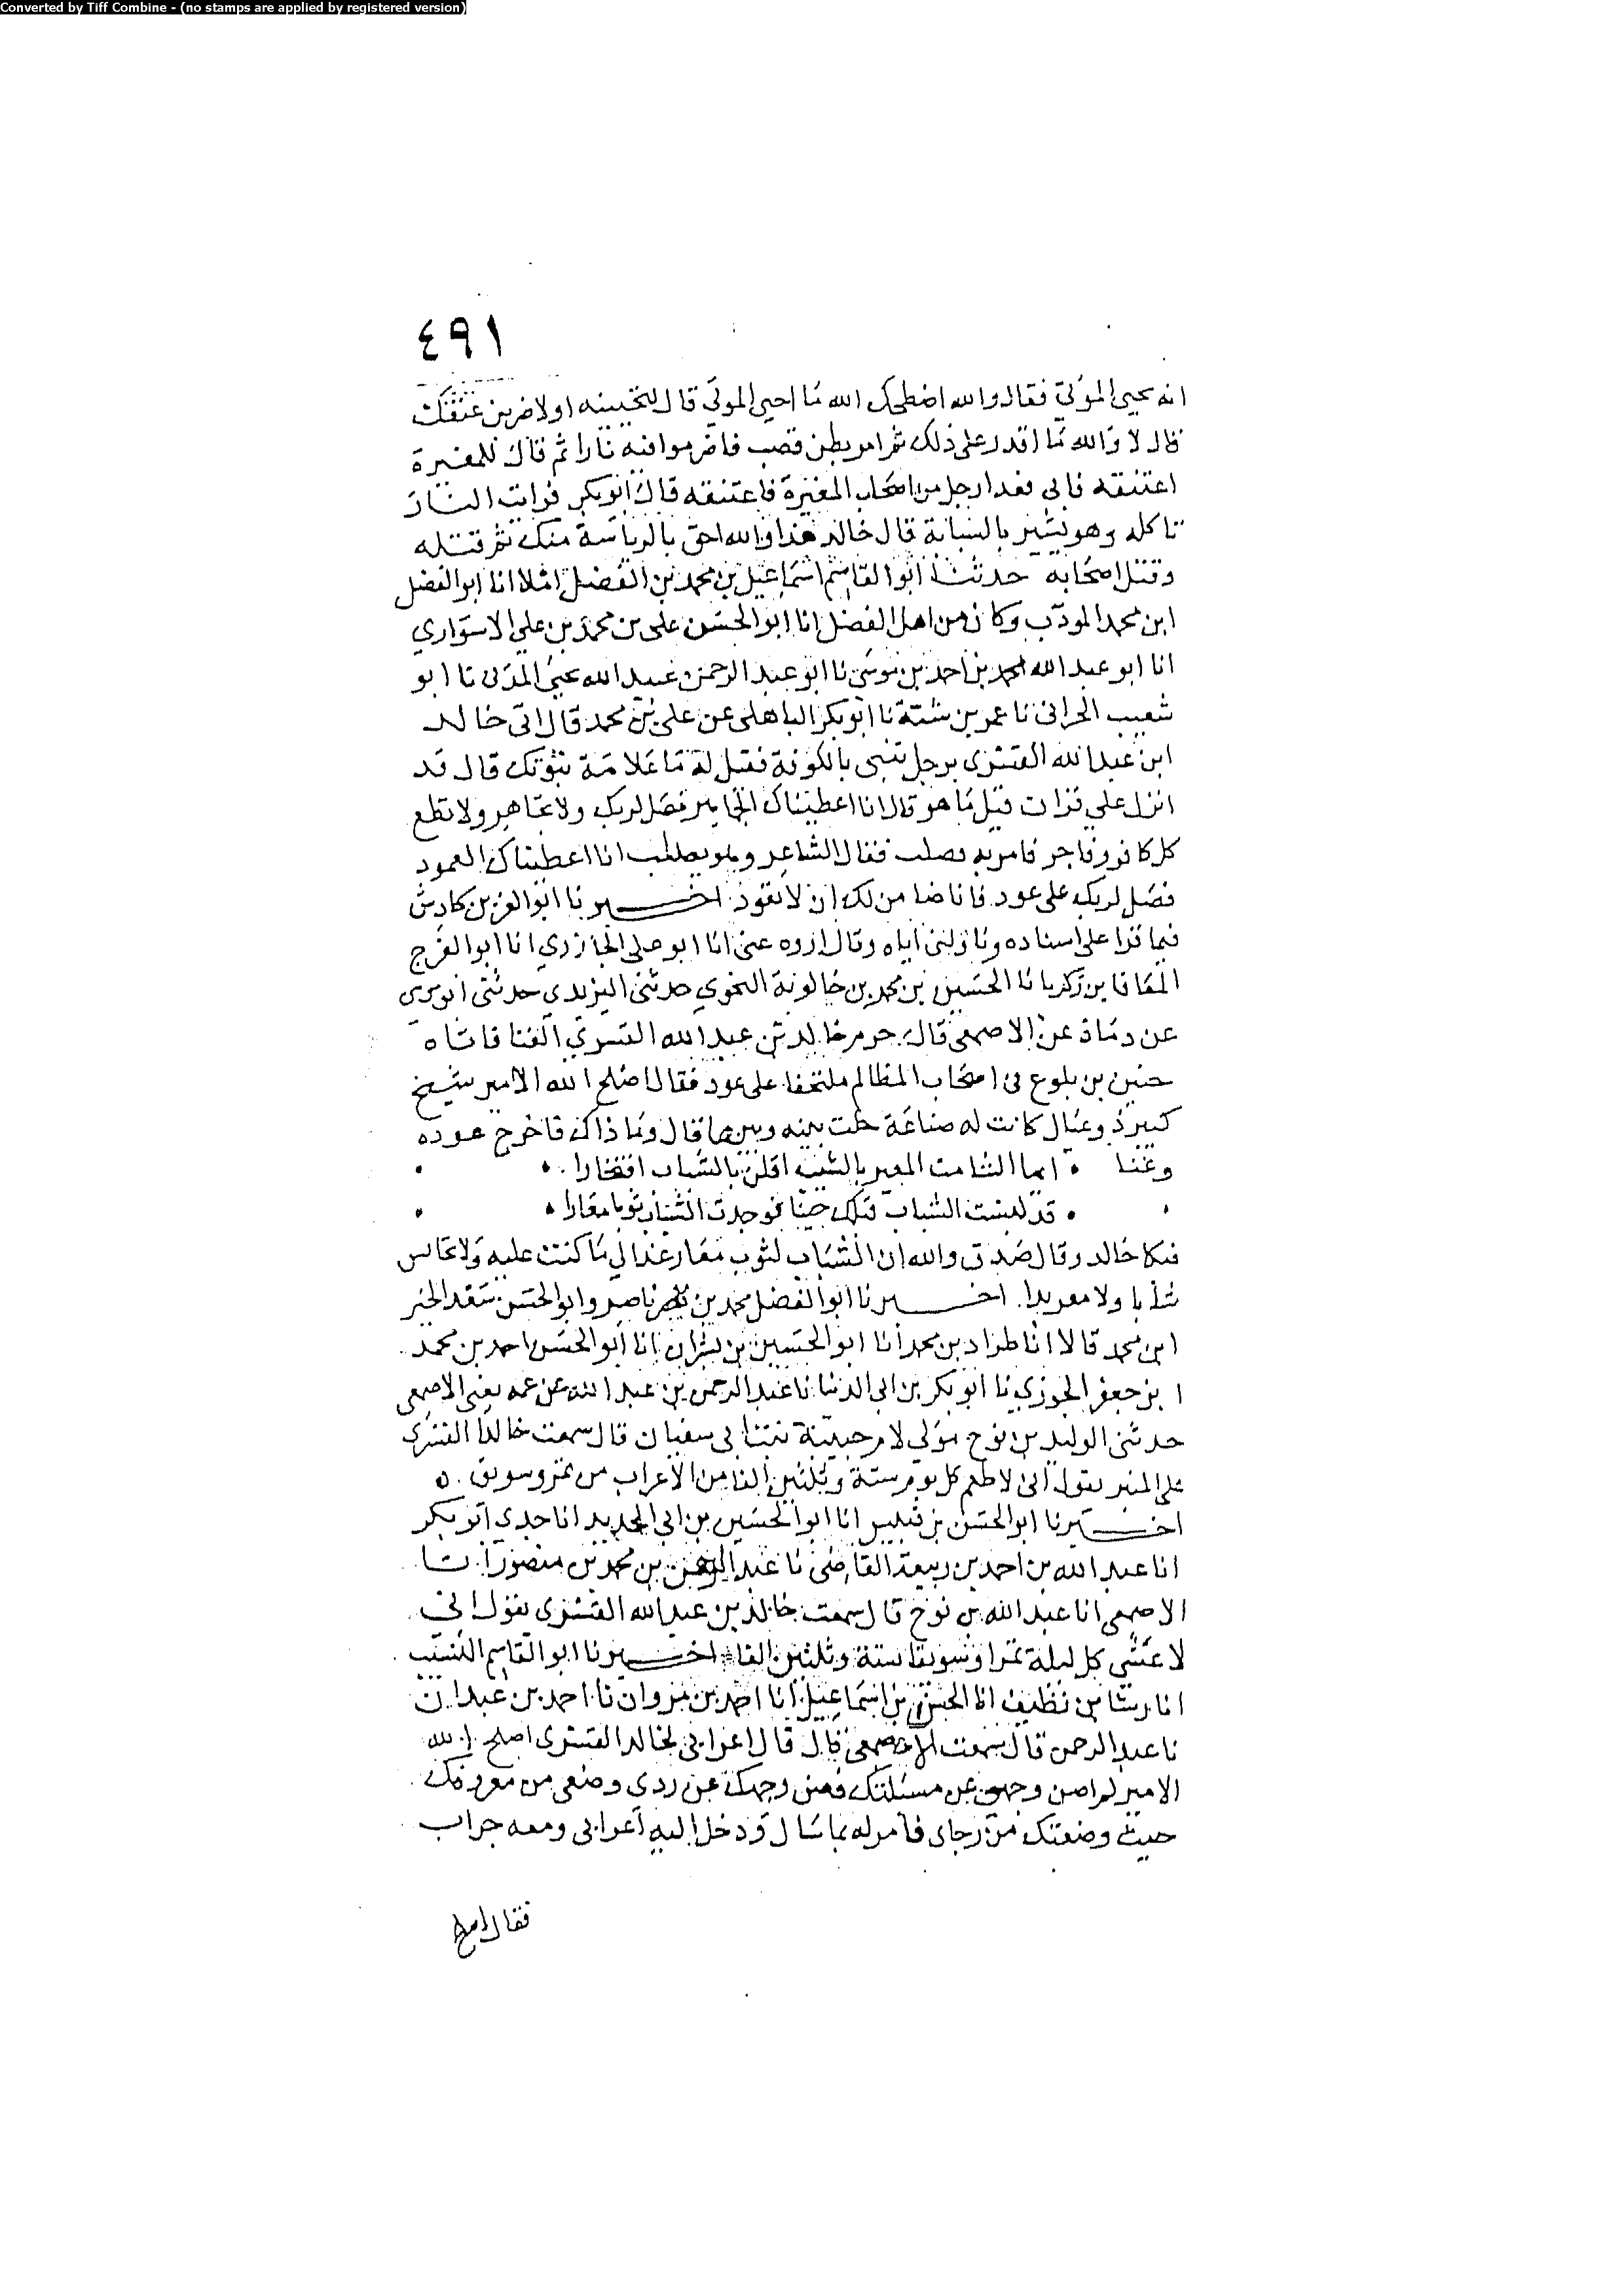 Converted by Tiff Combine - (no stamps are applied by registered version)
٤٩١
انه يحيى الموتى فقال والله اصلحك الله ما احيى الموتى قال لتحيينه او لاضربن عنقك
قال لا والله ما اقدر على ذلك ثم امر بطن قصب فاضرموا فيه نارا ثم قال للمغيرة
اعتنقه فابى فعدا رجل من اصحاب المغيرة فاعتنقه قال ابو بكر فرايت النار
تاكله وهو يشير بالسبابة قال خالد هذا والله احق بالرياسة منك ثم قتله
وقتل اصحابه حدثنا ابو القاسم اسماعيل بن محمد بن الفضل املا انا ابو الفضل
ابن محمد المودب وكان من اهل الفضل انا ابو الحسن على بن محمد بن علي الاسواري
انا ابو عبد الله محمد بن احمد بن موسى نا ابو عبد الرحمن عبيد الله يحيى المدنى نا ابو
شعيب الحرانى نا عمر بن شبة نا ابو بكر الباهلى عن على بن محمد قال اتى خالد
ابن عبد الله القسرى برجل تنبى بالكوفة فقيل له ما علامة نبوتك قال قد
انزل علي قرات قيل ما هو قال انا اعطيناك الجماهر فصل لربك ولا تجاهر ولا تطع
كل كافر وفاجر فامر به فصلب فقال الشاعر وهو يصلب انا اعطيناك العمود
فصل لربك على عود فانا ضامن لك ان لا تعود اخبرنا ابو العز بن كادش
فيما قرا على اسناده وناولنى اياه وقال اروه عنى انا ابو على الجازري انا ابو الفرج
المعافا بن زكريا نا الحسين بن محمد بن خالويه النحوي حدثنى اليزيدي حدثنى
عن دماذ عن الاصمعى قال حرم خالد بن عبد الله القسري الغنا فاتاه
حنين بن بلوع فى اصحاب المظالم ملتحفا على عود فقال اصلح الله الامير شيخ
كبير ذو عيال كانت له صناعة حلت بينه وبينها قال وما ذاك فاخرج عوده
وغنا • ايها الشامت المعير بالشيب اقلن بالشباب افتخارا •
• قد لبست الشباب قبلك حينا فوجدت الشباب ثوبا معارا •
فبكا خالد وقال صدق والله ان الشباب لثوب معار عد الى ما كنت عليه ولا تجالس
شابا ولا معربدا. اخبرنا ابو الفضل محمد بن ناصر وابو الحسن سعد الخير
ابن محمد قالا انا طراد بن محمد انا ابو الحسين بن بشران انا ابو الحسن احمد بن محمد
ابن جعفر الجوزي نا ابو بكر بن ابى الدنيا نا عبد الرحمن بن عبد الله عن عمه يعنى الاصمعى
حدثنى الوليد بن نوح مولى لام حبيبة بنت ابى سفيان قال سمعت خالدا القسرى
على المنبر يقول انى لاطعم كل يوم ستة وثلثين الفا من الاعراب من تمر وسويق ٥
اخبرنا ابو الحسن بن قبيس انا ابو الحسين بن ابى الحديد انا جدى ابو بكر
انا عبد الله بن احمد بن ربيعة القاضى نا عبد الرحمن بن محمد بن منصور نا
الاصمعى انا عبد الله بن نوح قال سمعت خالد بن عبد الله القسرى يقول انى
لاعشى كل ليلة تمرا وسويقا ستة وثلثين الفا اخبرنا ابو القاسم النسيب
انا رشا بن نظيف انا الحسن بن اسماعيل انا احمد بن مروان نا احمد بن عبدان
نا عبد الرحمن قال سمعت الاصمعى قال قال اعرابى لخالد القسرى اصلح الله
الامير لم اصن وجهى عن مسئلتك فصن وجهك عن ردى وضعنى من معروفك
حيث وضعتك من رجاى فامر له بما سال ودخل اليه اعرابى ومعه جراب
فقال اصلح